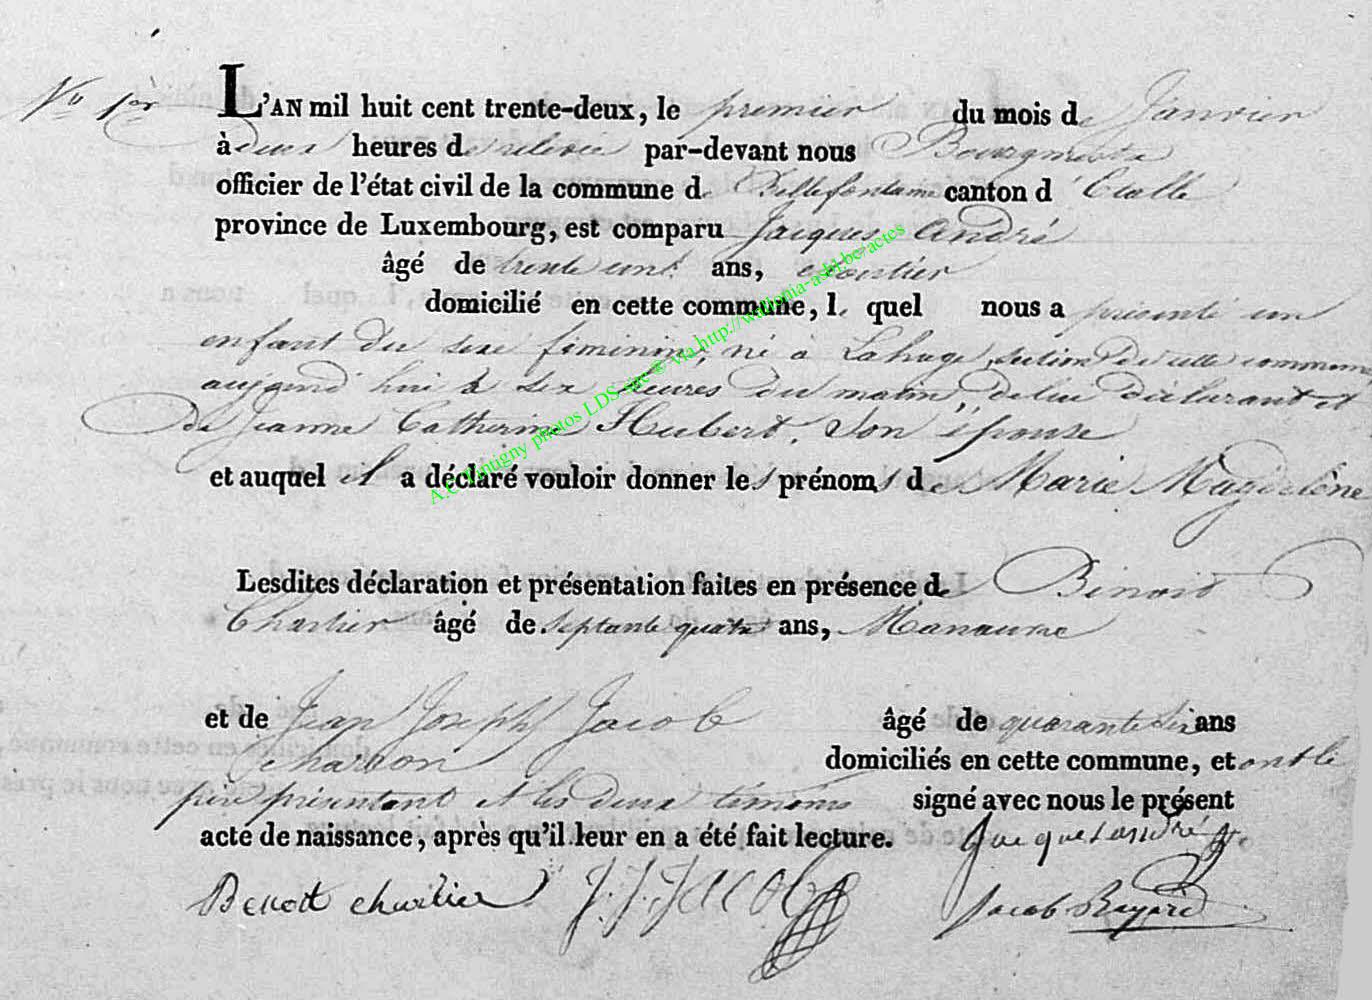 No 1er
L'AN mil huit cent trente-deux, le premier du mois de Janvier
à deux heures de relevée par-devant nous Bourgmestre
officier de l'état civil de la commune de Bellefontaine canton d'Etalle
province de Luxembourg, est comparu Jacques André
âgé de trente un ans,
domicilié en cette commune, le quel nous a présenté un
enfant du sexe féminin, né à Lahage, section de cette commune
aujourd'hui à six heures du matin, de lui déclarant et
de Jeanne Catherine Hubert, son épouse
et auquel il a déclaré vouloir donner les prénoms de Marie Magdelène
Lesdites déclaration et présentation faites en présence de Benoit
Charlier âgé de septante quatre ans, Manœuvre
et de Jean Joseph Jacob âgé de quarante six ans
charron domiciliés en cette commune, et ont le
père présentant et les deux témoins signé avec nous le présent
acte de naissance, après qu'il leur en a été fait lecture.
Benoit charlier J. J. Jacob Jacob
A.C. Tintigny photos LDS site © via http://wallonia-asbl.be/actes